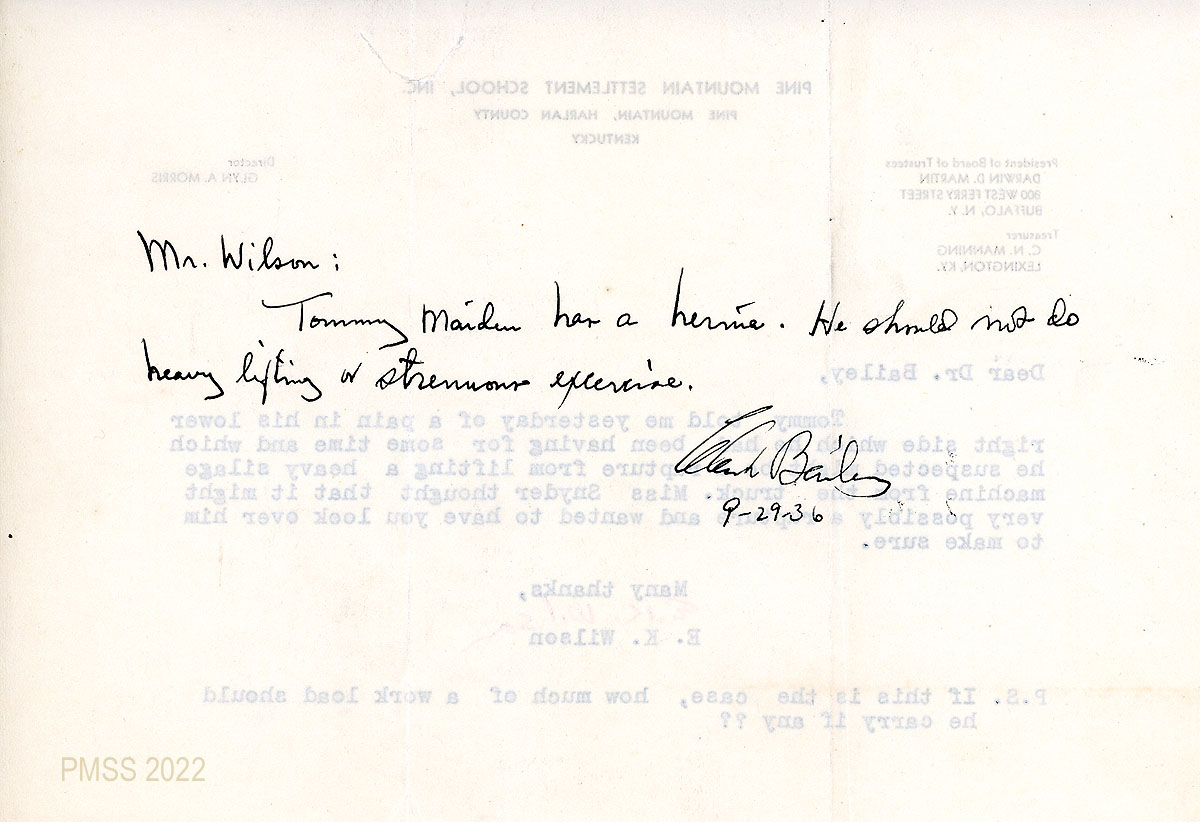 PINE MOUNTAIN SETTLEMENT SCHOOL, INC.
PINE MOUNTAIN, HARLAN COUNTY
KENTUCKY
President of Board of Trustees
DARWIN D. MARTIN
800 WEST FERRY STREET
BUFFALO, N. Y.
Treasurer
C. N. MANNING
LEXINGTON, KY.
Director
GLYN A. MORRIS
Mr. Wilson:
Tommy Maiden has a hernia. He should not do
heavy lifting or strenuous excercise.
Clark Bailey
9-29-36
Dear Dr. Bailey,
Tommy told me yesterday of a pain in his lower
right side which he has been having for some time and which
he suspected from lifting a heavy silage
machine from the truck. Miss Snyder thought that it might
very possibly and wanted to have you look over him
to make sure.
Many thanks,
E. K. Wilson
P.S. If this is the case, how much of a work load should
he carry if any ??
PMSS 2022